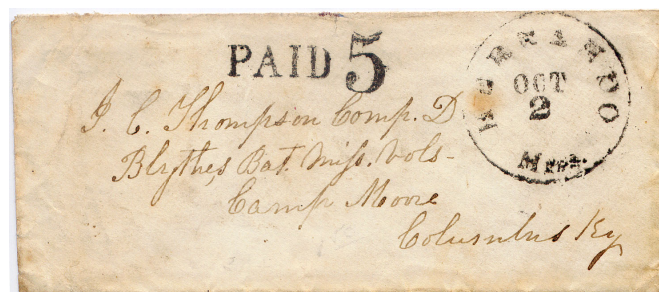 PAID 5
HERNANDO
OCT
2
Miss.
J. C. Thompson Comp. D
Blythes Bat. Miss. Vols-
Camp Moore
Columbus Ky